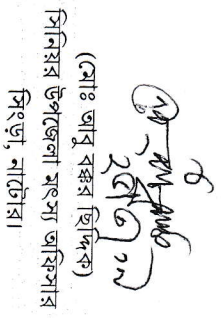 (মোঃ আবু বক্কর ছিদ্দিক)
সিনিয়র উপজেলা মৎস্য অফিসার
সিংড়া, নাটোর।